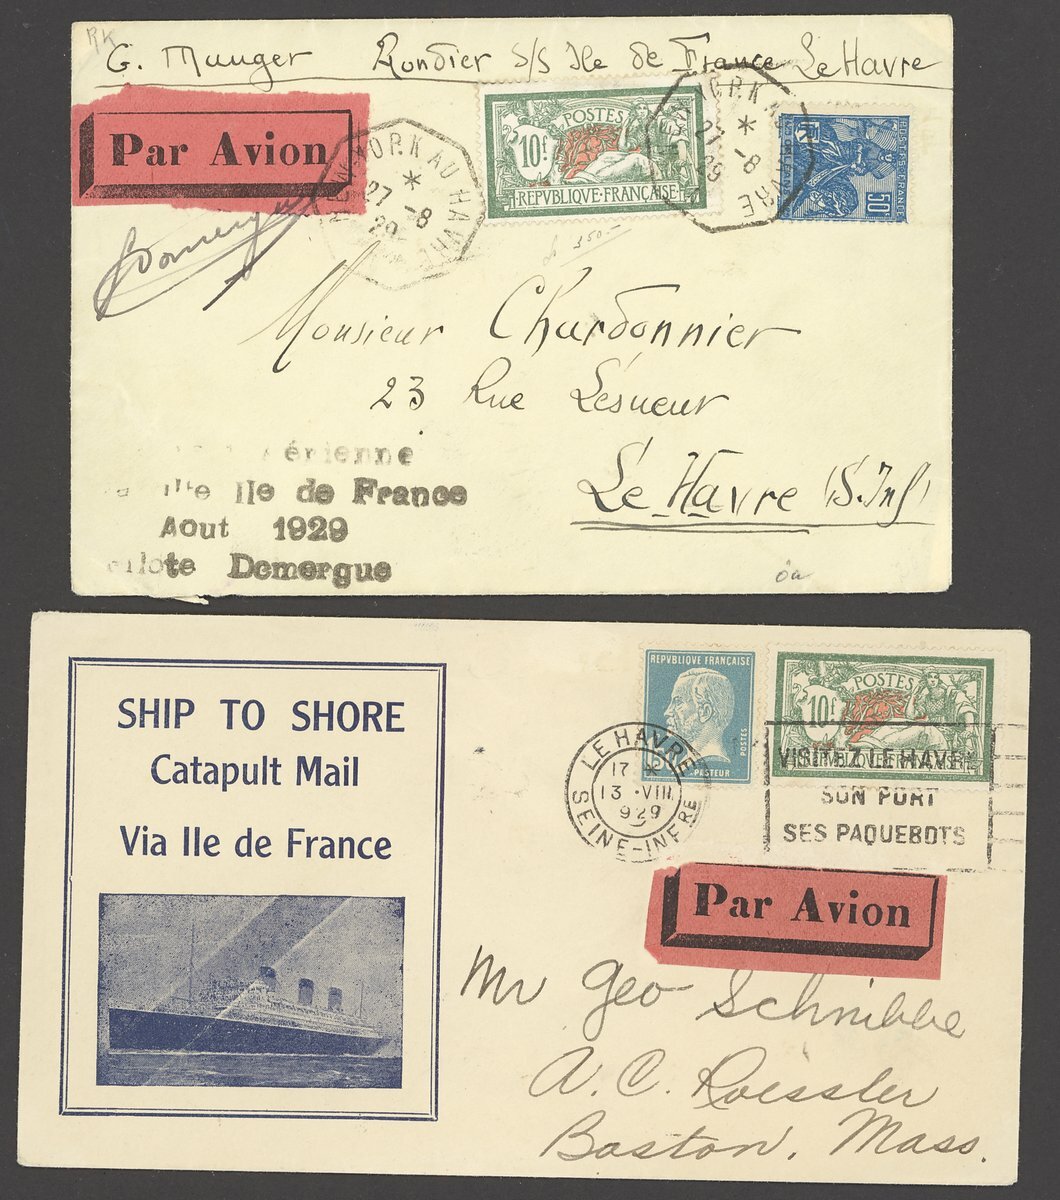 RK
G. Mauger Rondier S/S Ile de France Le Havre
Par Avion
NEW-YORK AU HAVRE
27 -8
29
POSTES
10f
REPVBLIQUE FRANÇAISE
NEW-YORK AU HAVRE
27 -8
29
POSTES FRANCE
50c
350.-
Monsieur Chardonnier
23 Rue Lesueur
Le Havre (S. Inf)
Aérienne
Ile de France
Aout 1929
Pilote Domergue
SHIP TO SHORE
Catapult Mail
Via Ile de France
REPVBLIQUE FRANÇAISE
POSTES
PASTEUR
POSTES
10f
LE HAVRE
17 *
13 .VIII.
929
SEINE-INFRE
VISITEZ LE HAVRE
SON PORT
SES PAQUEBOTS
Par Avion
Mr Geo Schnibbe
A. C. Roessler
Boston, Mass.